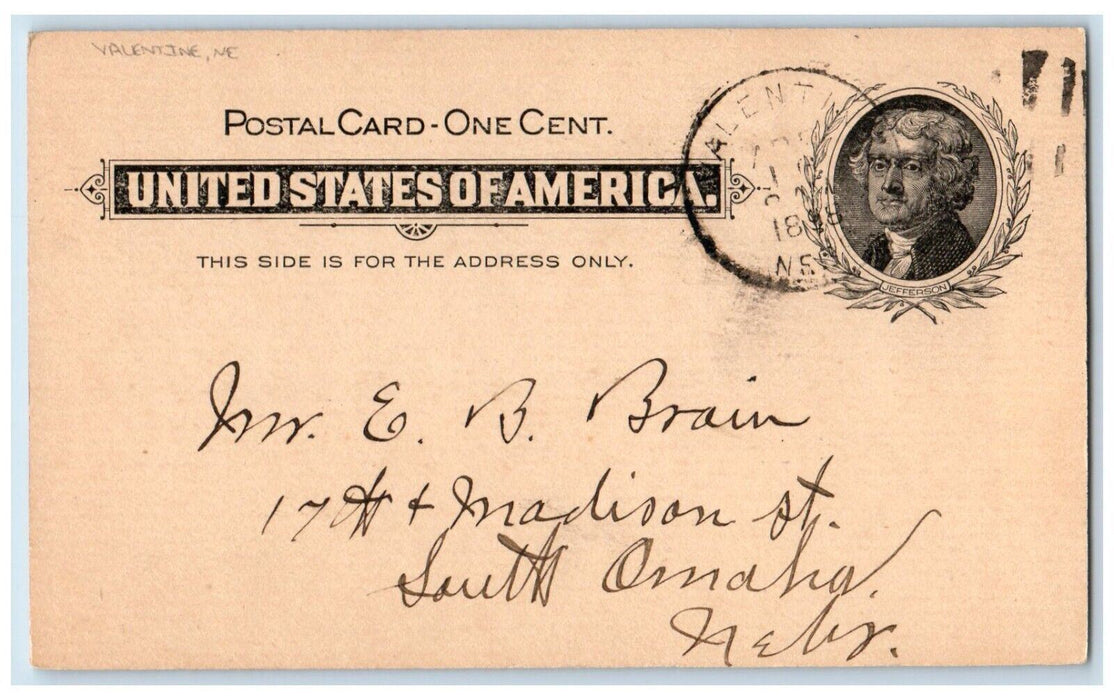 VALENTINE, NE
POSTAL CARD - ONE CENT.
UNITED STATES OF AMERICA.
THIS SIDE IS FOR THE ADDRESS ONLY.
JEFFERSON
Mr. E. B. Brain
17th & Madison st.
South Omaha.
Nebr.